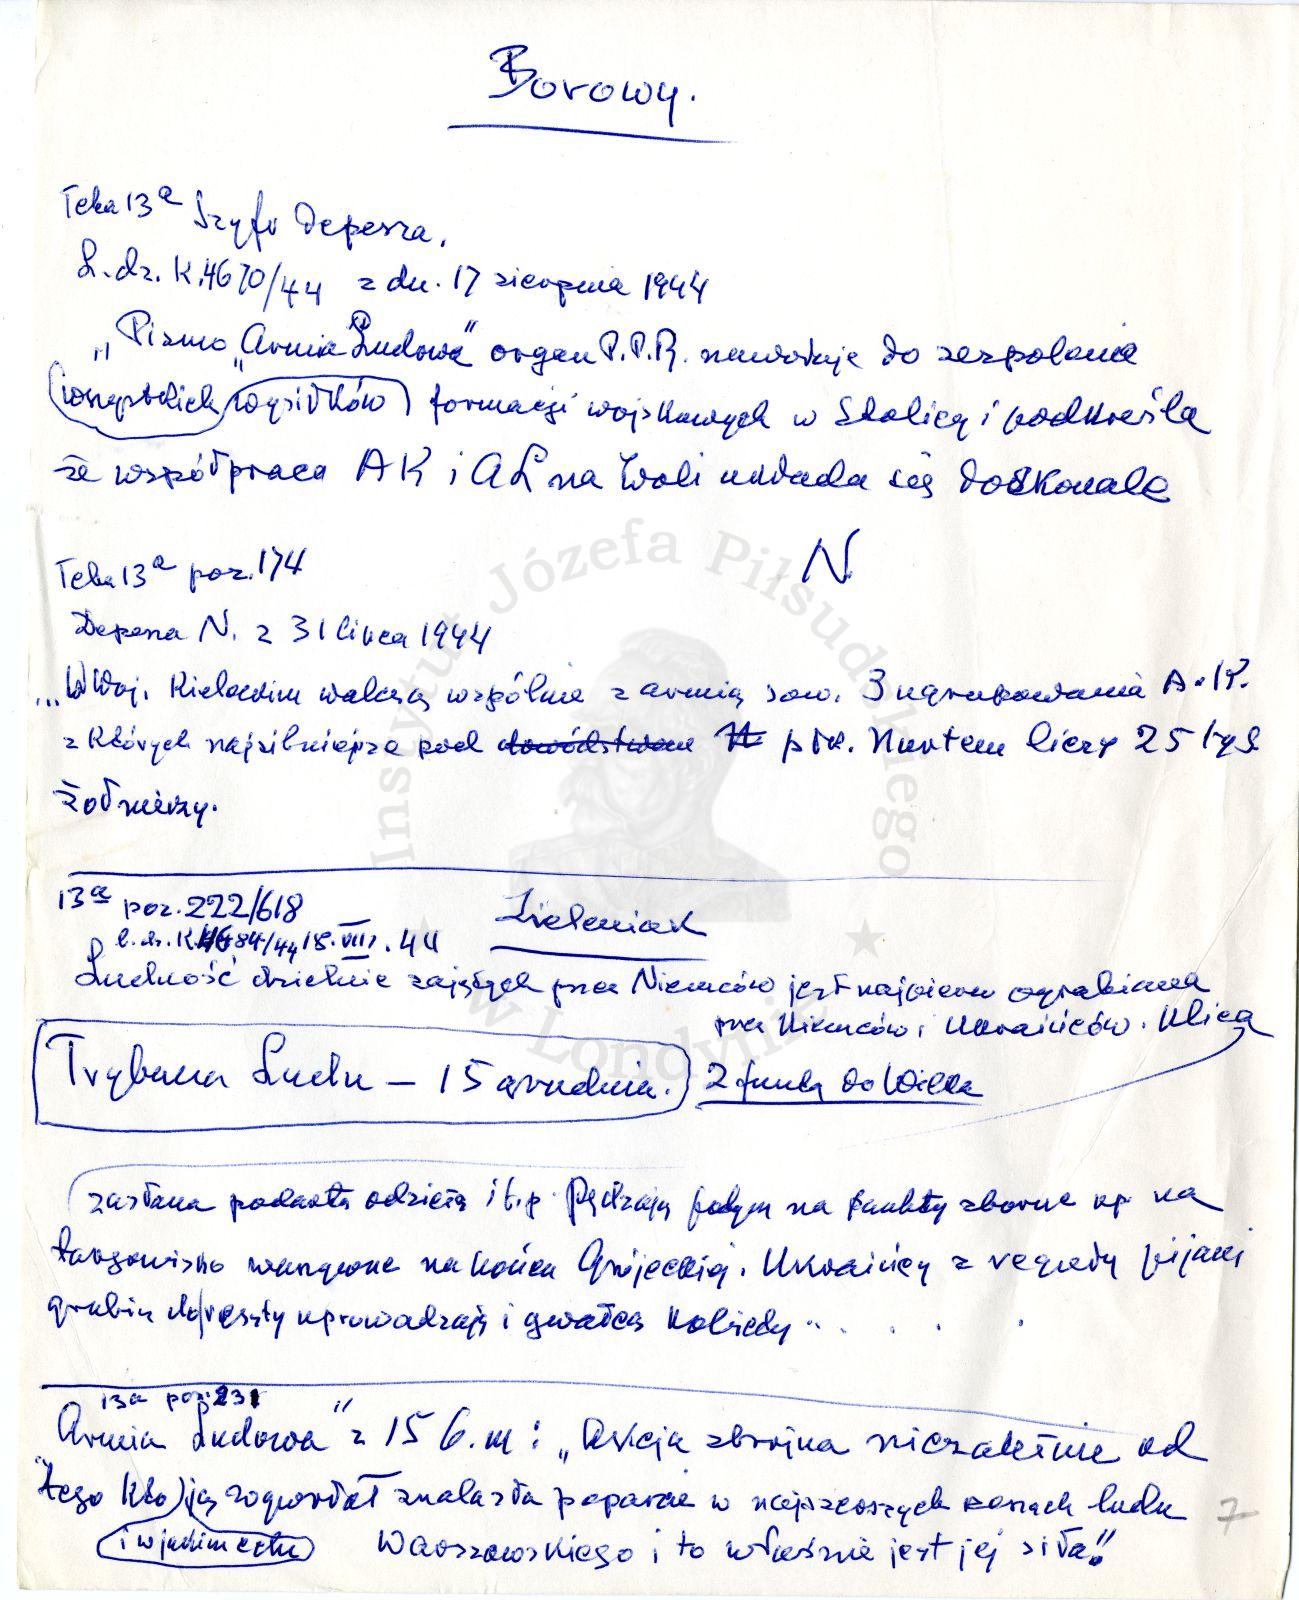 Borowy.
Teka 13a Szyfr Depesza.
L.dz. K.4670/44 z dn. 17 sierpnia 1944
"Pismo "Armia Ludowa" organ P.P.R. nawołuje do zespolenia
wszystkich wysiłków formacji wojskowych w Stolicy i podkreśla
że współpraca AK i AL na Woli układa się doskonale
N
Teka 13a poz. 174
Depesza N. z 31 lipca 1944
"W Woj. Kieleckim walczą wspólnie z armią sow. 3 ugrupowania A.K.
z których najsilniejsze pod dowództwem płk. Nurtem liczy 25 tys
żołnierzy.
13a poz. 222/618
Zieleniak
l.dz. K.4684/44 18.VIII.44
Ludność dzielnic zajętych przez Niemców jest najpierw ograbiana
przez Niemców i Ukraińców. Ulica
Trybuna Ludu – 15 grudnia.
2 funty do Wilka
zasłana podartą odzieżą i t.p. Pędzają potym na punkty zborne np na
targowisko warzywne na końcu Grójeckiej. Ukraińcy z reguły pijani
grabią doreszty uprowadzają i gwałcą kobiety" . . . .
13a poz. 231
"Armia Ludowa" z 15 b.m: "Akcja zbrojna niezależnie od
tego kto ją rozpoczął znalazła poparcie w najszerszych masach ludu
i w jakim celu
Warszawskiego i to właśnie jest jej siła"
7
Instytut Józefa Piłsudskiego
w Londynie